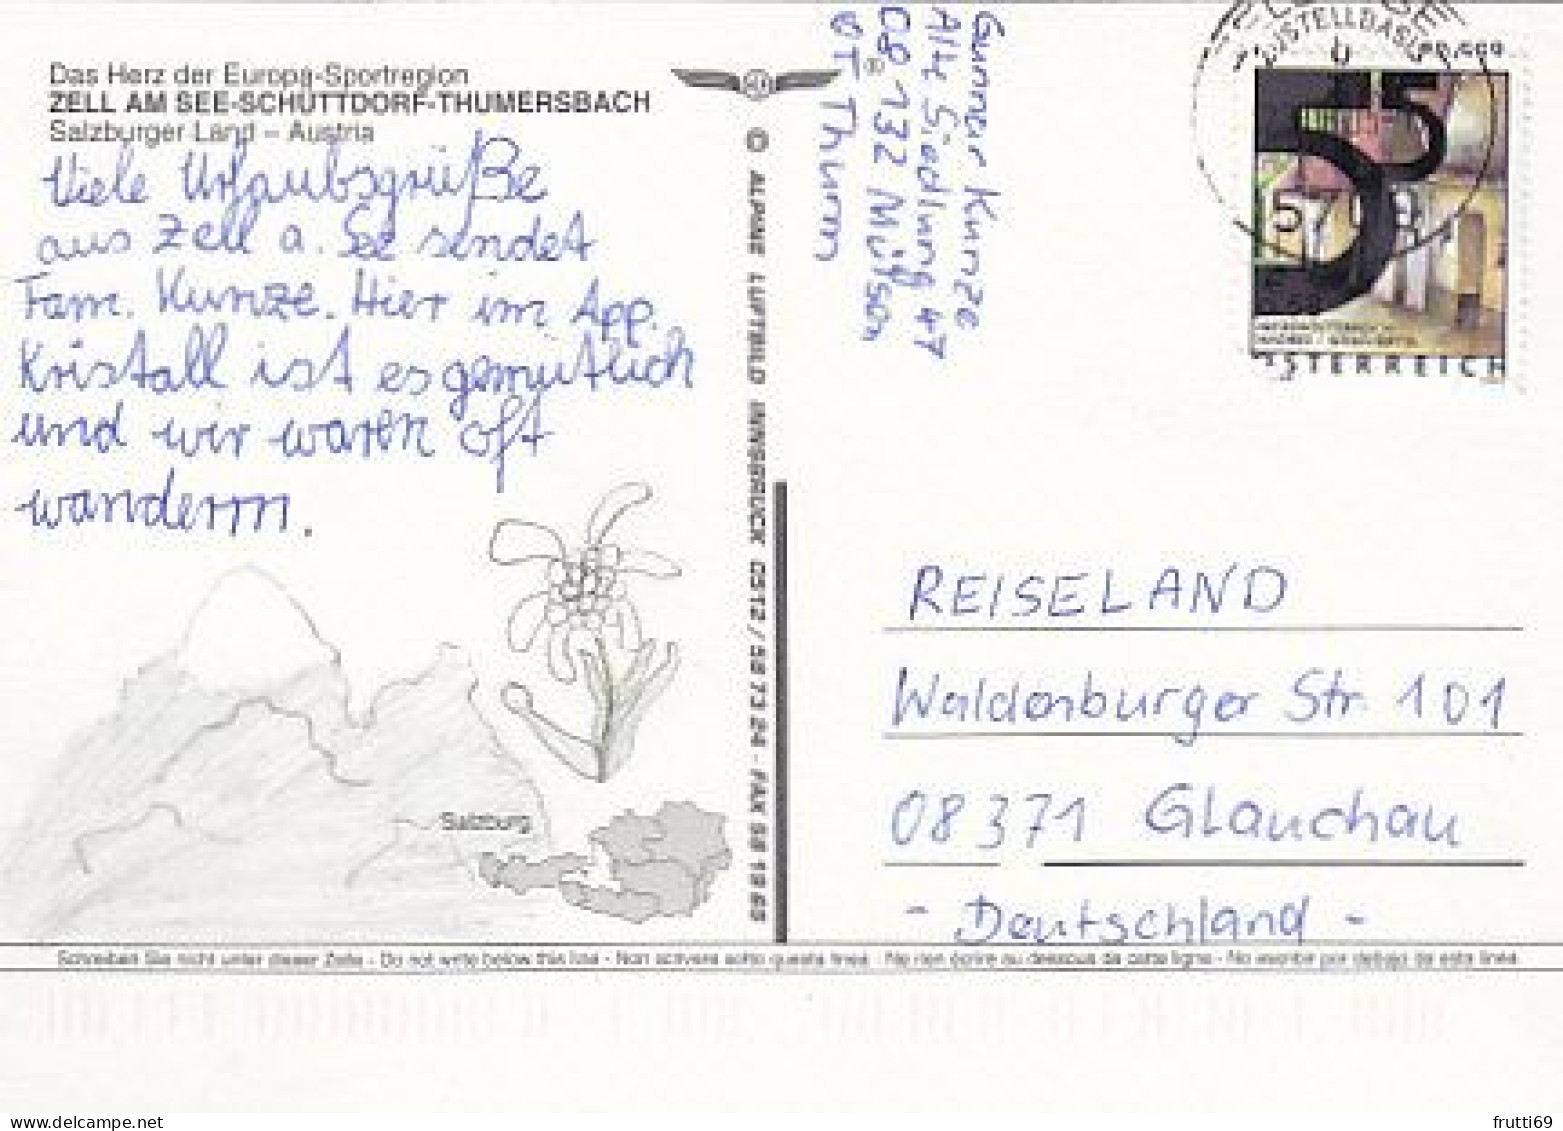 Das Herz der Europa-Sportregion
ZELL AM SEE-SCHÜTTDORF-THUMERSBACH
Salzburger Land – Austria
Viele Urlaubsgrüße
aus Zell a. See sendet
Fam. Kunze. Hier im App.
Kristall ist es gemütlich
und wir waren oft
wandern.
Salzburg
® 
© ALPINE LUFTBILD INNSBRUCK 0512/587324 · FAX 581965
Gunner Kunze
Alte Siedlung 47
08132 Mülsen
OT Thurm
ZUSTELLBASIS
55
ÖSTERREICH
REISELAND
Waldenburger Str. 101
08371 Glauchau
- Deutschland -
Schreiben Sie nicht unter dieser Zeile - Do not write below this line - Non scrivere sotto questa linea - Ne rien écrire au dessous de cette ligne - No escribir por debajo de esta linea
frutti69